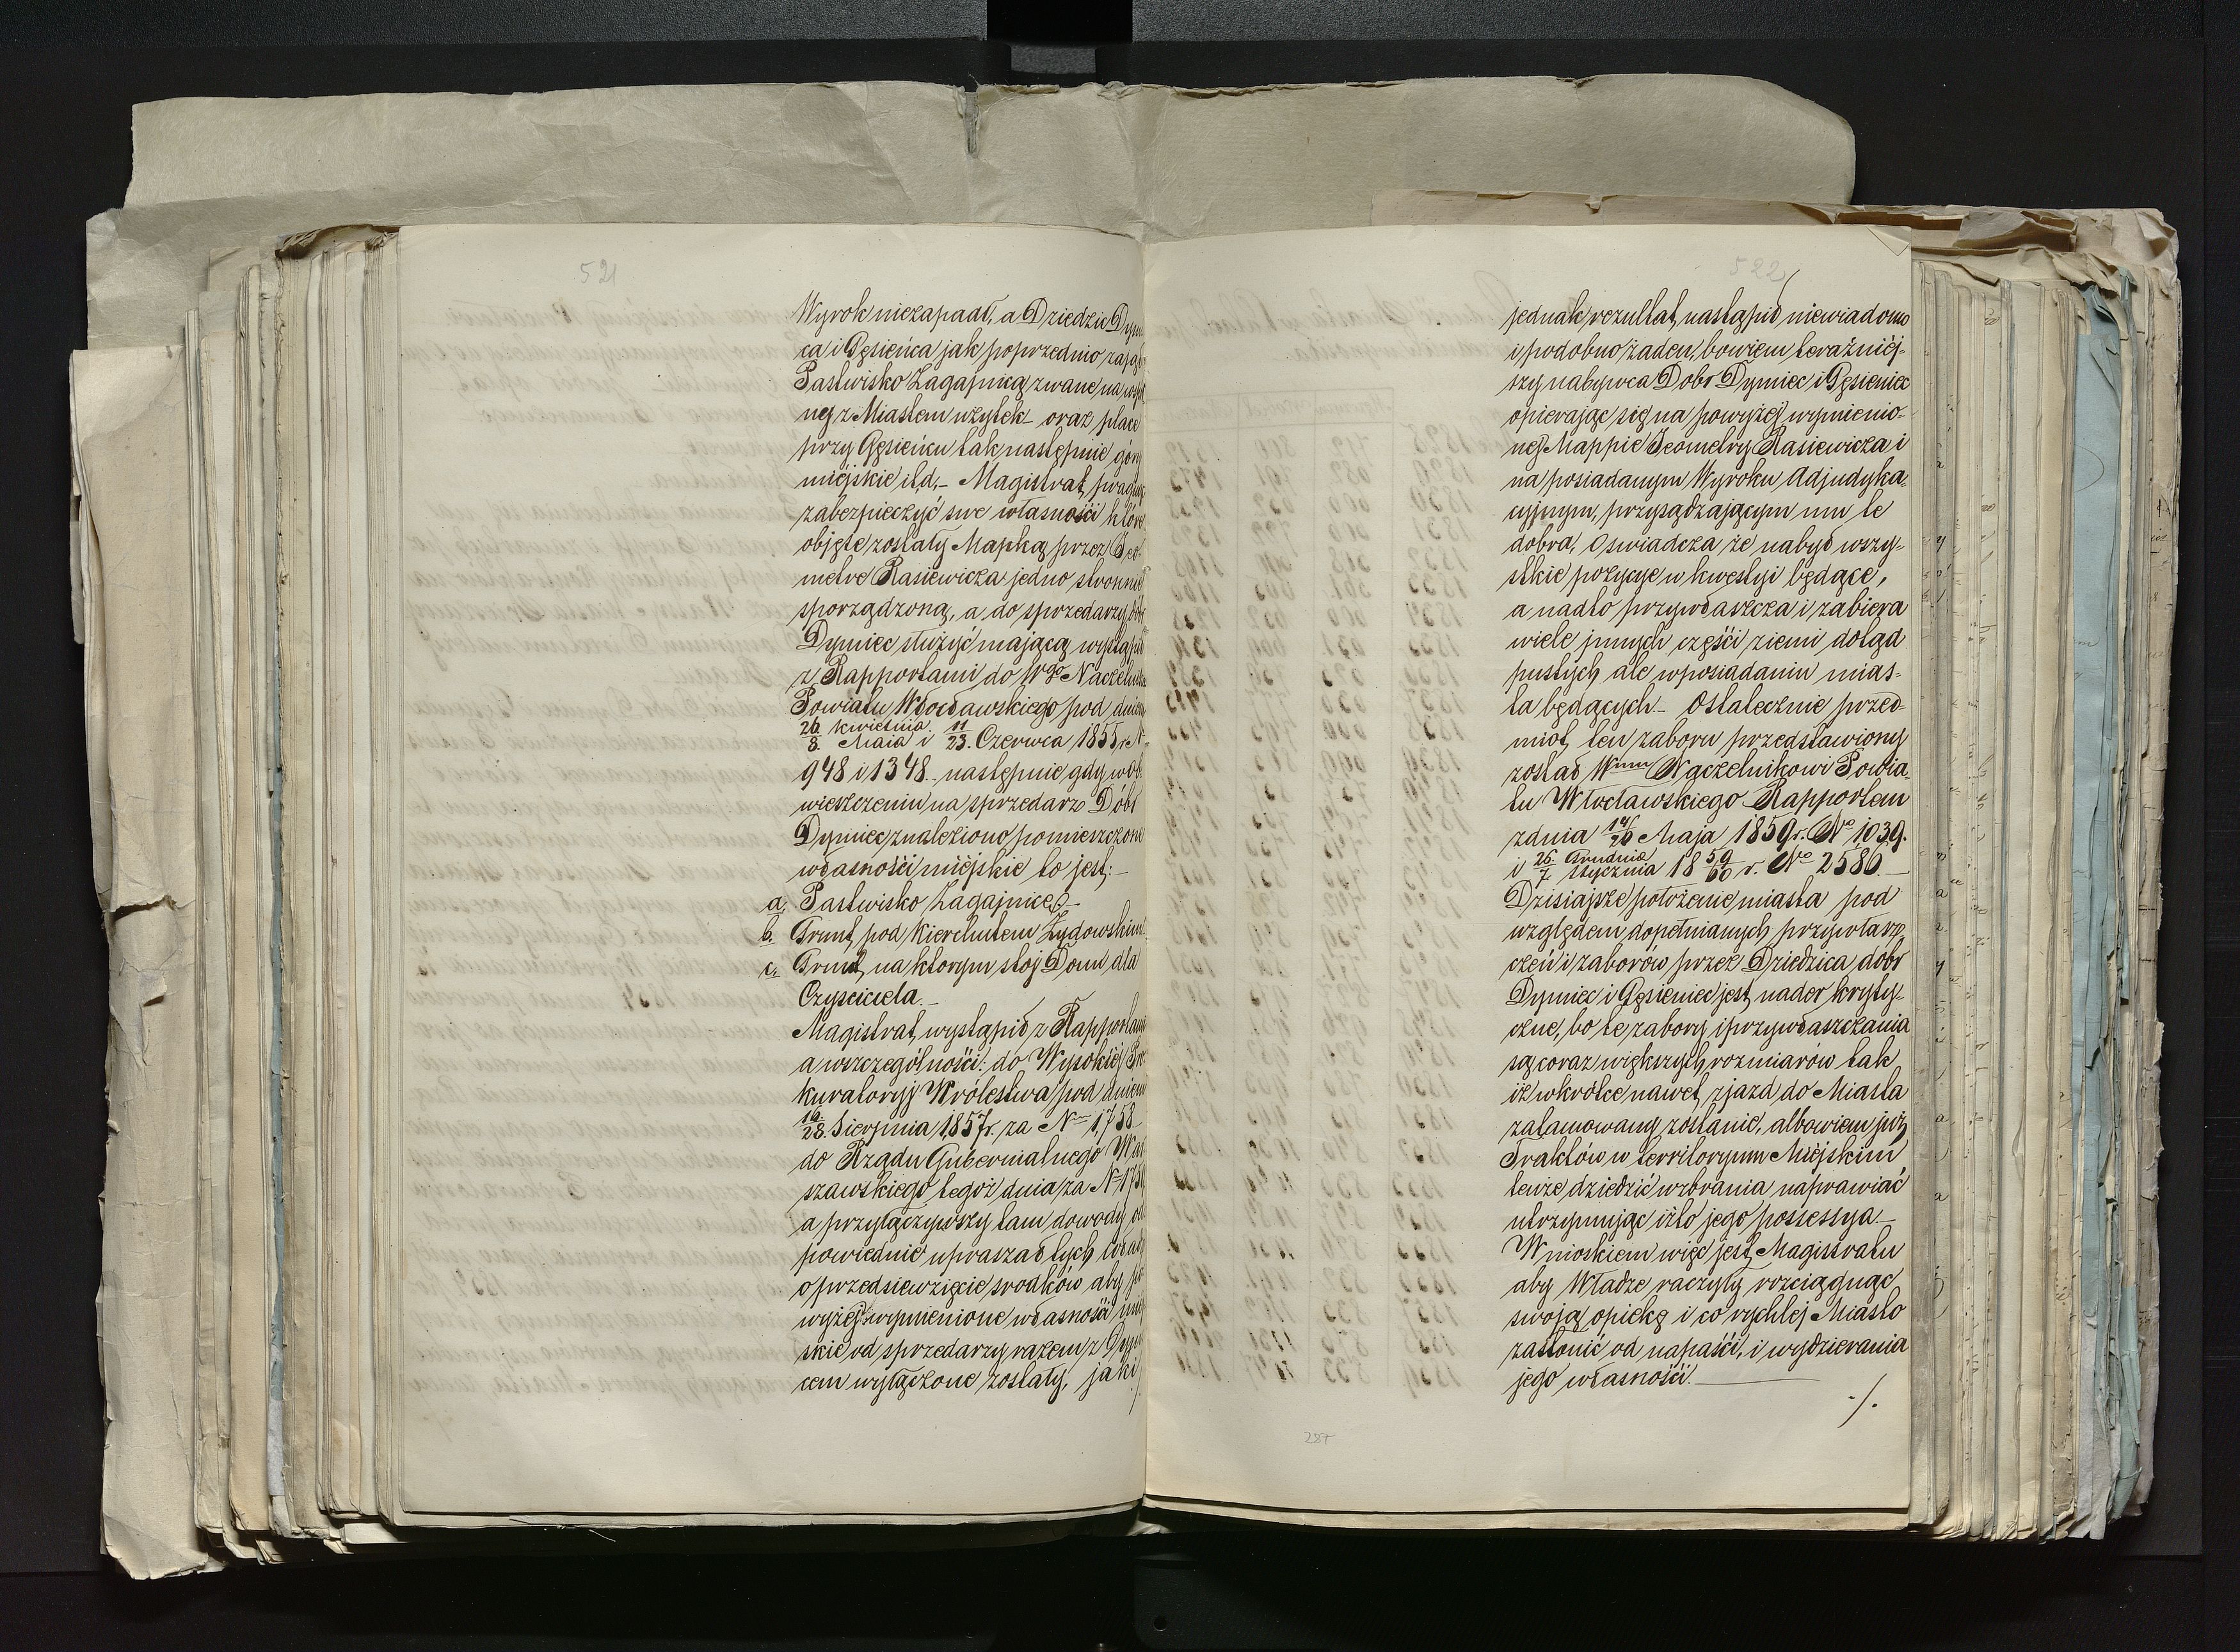 521
Wyrok niezapadł, a Dziedzic Dym
ca i Gęsieńca jak poprzednio zajął
Pastwisko Zagajnicą zwane na wspól
ny z Miastem użytek oraz place
przy Gęsieńcu tak następnie góry
miéjskie itd, – Magistrat, pragnąc
zabezpieczyć swe własności które
objęte zostały Mapką przez Jeo
metre Rasiewicza jedno stronnie
sporządzoną, a do sprzedarzy dóbr
Dymiec służyć mającą wystąpił
z Rapportami do Wgo Naczelnika
Powiatu Włocławskiego pod dniem
26/8. Kwietnia/Maia i 11/23. Czerwca 1855 r. N
948 i 1348. następnie gdy w ob
wieszczeniu na sprzedarz Dóbr
Dymiec znaleziono pomieszczone
własności miéjskie to jest: –
a, Pastwisko Zagajnice, –
b. Grunt pod Kierchutem Żydowskim
c. Grunt, na ktorym stoj Dom dla
Czyściciela. –
Magistrat, wystąpił z Rapportami
a wszczególności: do Wysokiéj Pro
kuratoryj Królestwa pod dniem
16/28. Sierpnia 1857 r. za Nm 1,758
do Rządu Gubernialnego War
szawskiego tegoż dnia za N 1759
a przyłączywszy tam dowody od
powiednie upraszał tych władz
o przedsiewzięcie srodków aby po
wyżéj wymienione własności miéj
skie od sprzedarzy razem z Dym
cem wyłączone zostały, jaki
522
jednak, rezultat, nastąpił, niewiadomo
i podobno żaden, bowiem teraźniéj-
szy nabywca Dobr Dymiec i Gęsieniec
opierając się na powyżéj wymienio-
néj Mappie Jeometry Rasiewicza i
na posiadanym Wyroku Adjudyka-
cyjnym, przysądzającym mu te
dobra, Oswiadcza, że nabył wszy-
stkie pozycye w kwestyi będące,
a nadto przywłaszcza i zabiera
wiele jnnych części ziemi dotąd
pustych ale w posiadaniu mias-
ta będących – Ostatecznie przed-
miot, ten zaboru przedstawiony
został Wmu Naczelnikowi Powia-
tu Włocławskiego Rapportem
z dnia 14/26 Maja 1859 r. No 1,039.
i 26/7 Grudnia/Stycznia 18 59/60 r. No 2586. –
Dzisiajsze położenie miasta pod
względem dopełnianych przywłasz-
czeń i zaborów przez Dziedzica dobr
Dymiec i Gęsieniec jest, nader kryty-
czne, bo te zabory i przywłaszczania
są coraz większych rozmiarów tak
iż wkrótce nawet, zjazd do Miasta
zatamowany zostanie, albowiem już
Traktów w territoryum Miéjskim
tenże dziedzic wzbrania naprawiać
utrzymując iż to jego possessya –
Wnioskiem więc jest, Magistratu
aby Władze raczyły rozciągnąć
swoją opiekę i co rychlej Miasto
zasłonić od napaści, i wydzierania
jego własności. –
./.
287